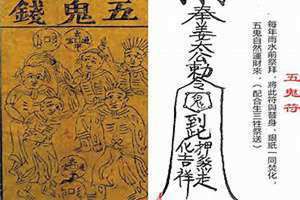 五鬼錢
五鬼符
每年雨水前祭拜，將此符與替身、銀紙一同焚化，
五鬼自然運財來。（配合生三牲祭送）
奉姜太公勅令
鬼
到此
化吉祥